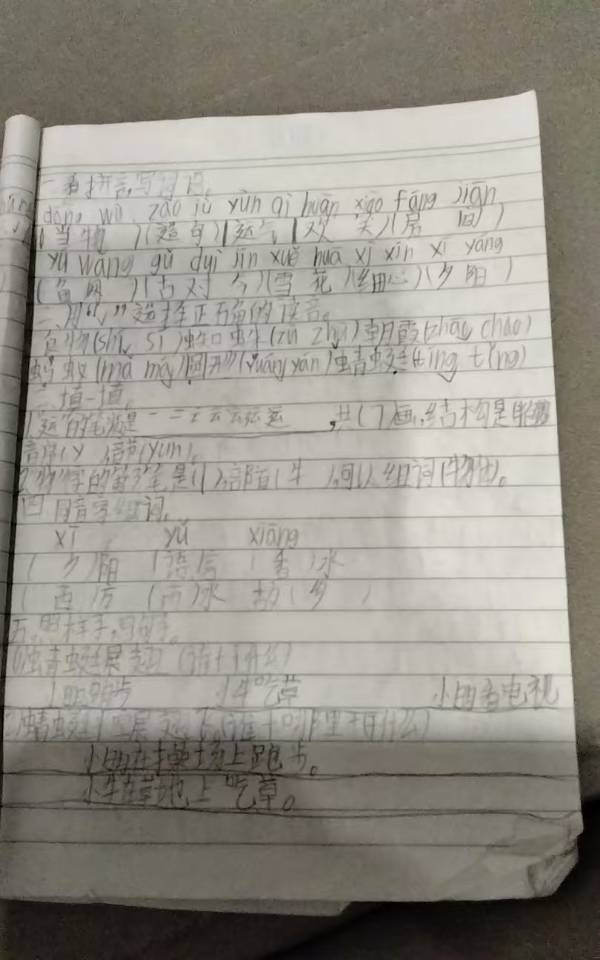 一、看拼音,写词语。
dòng wù zào jù yùn qì huān xiào fáng jiān
( 物 )( 句 )( 气 )( 欢 笑 )( 房 间 )
yú wǎng gǔ duì jīn xuě huā xì xīn xī yáng
(鱼 网 )(古 对 今 )(雪 花 )(细心 )(夕 阳 )
二、用"√"选择正确的读音。
食物(shí sì)蜘蛛(zū zhū)朝霞(zhāo cháo)
蚂蚁(mā mǎ)圆形(yuáng yán)蜻蜓(tīng tíng)
三、填一填。
"运"的笔顺是 ,共(7)画,结构是
音序(Y),音节(yùn)。
2."物"字的第 笔是( ),部首(牛),可以组词(物 )。
四、同音字组词。
xī yǔ xiāng
( 夕 )阳 (语)言 (香)水
( 西 )方 (雨)水 故(乡)
五、照样子,写句子。
(1)蜻蜓展翅 (谁干什么)
跑步 小牛吃草 小明看电视
(2)蜻蜓 展翅飞(谁在哪里干什么)
小明在操场上跑步。
小牛在草地上吃草。